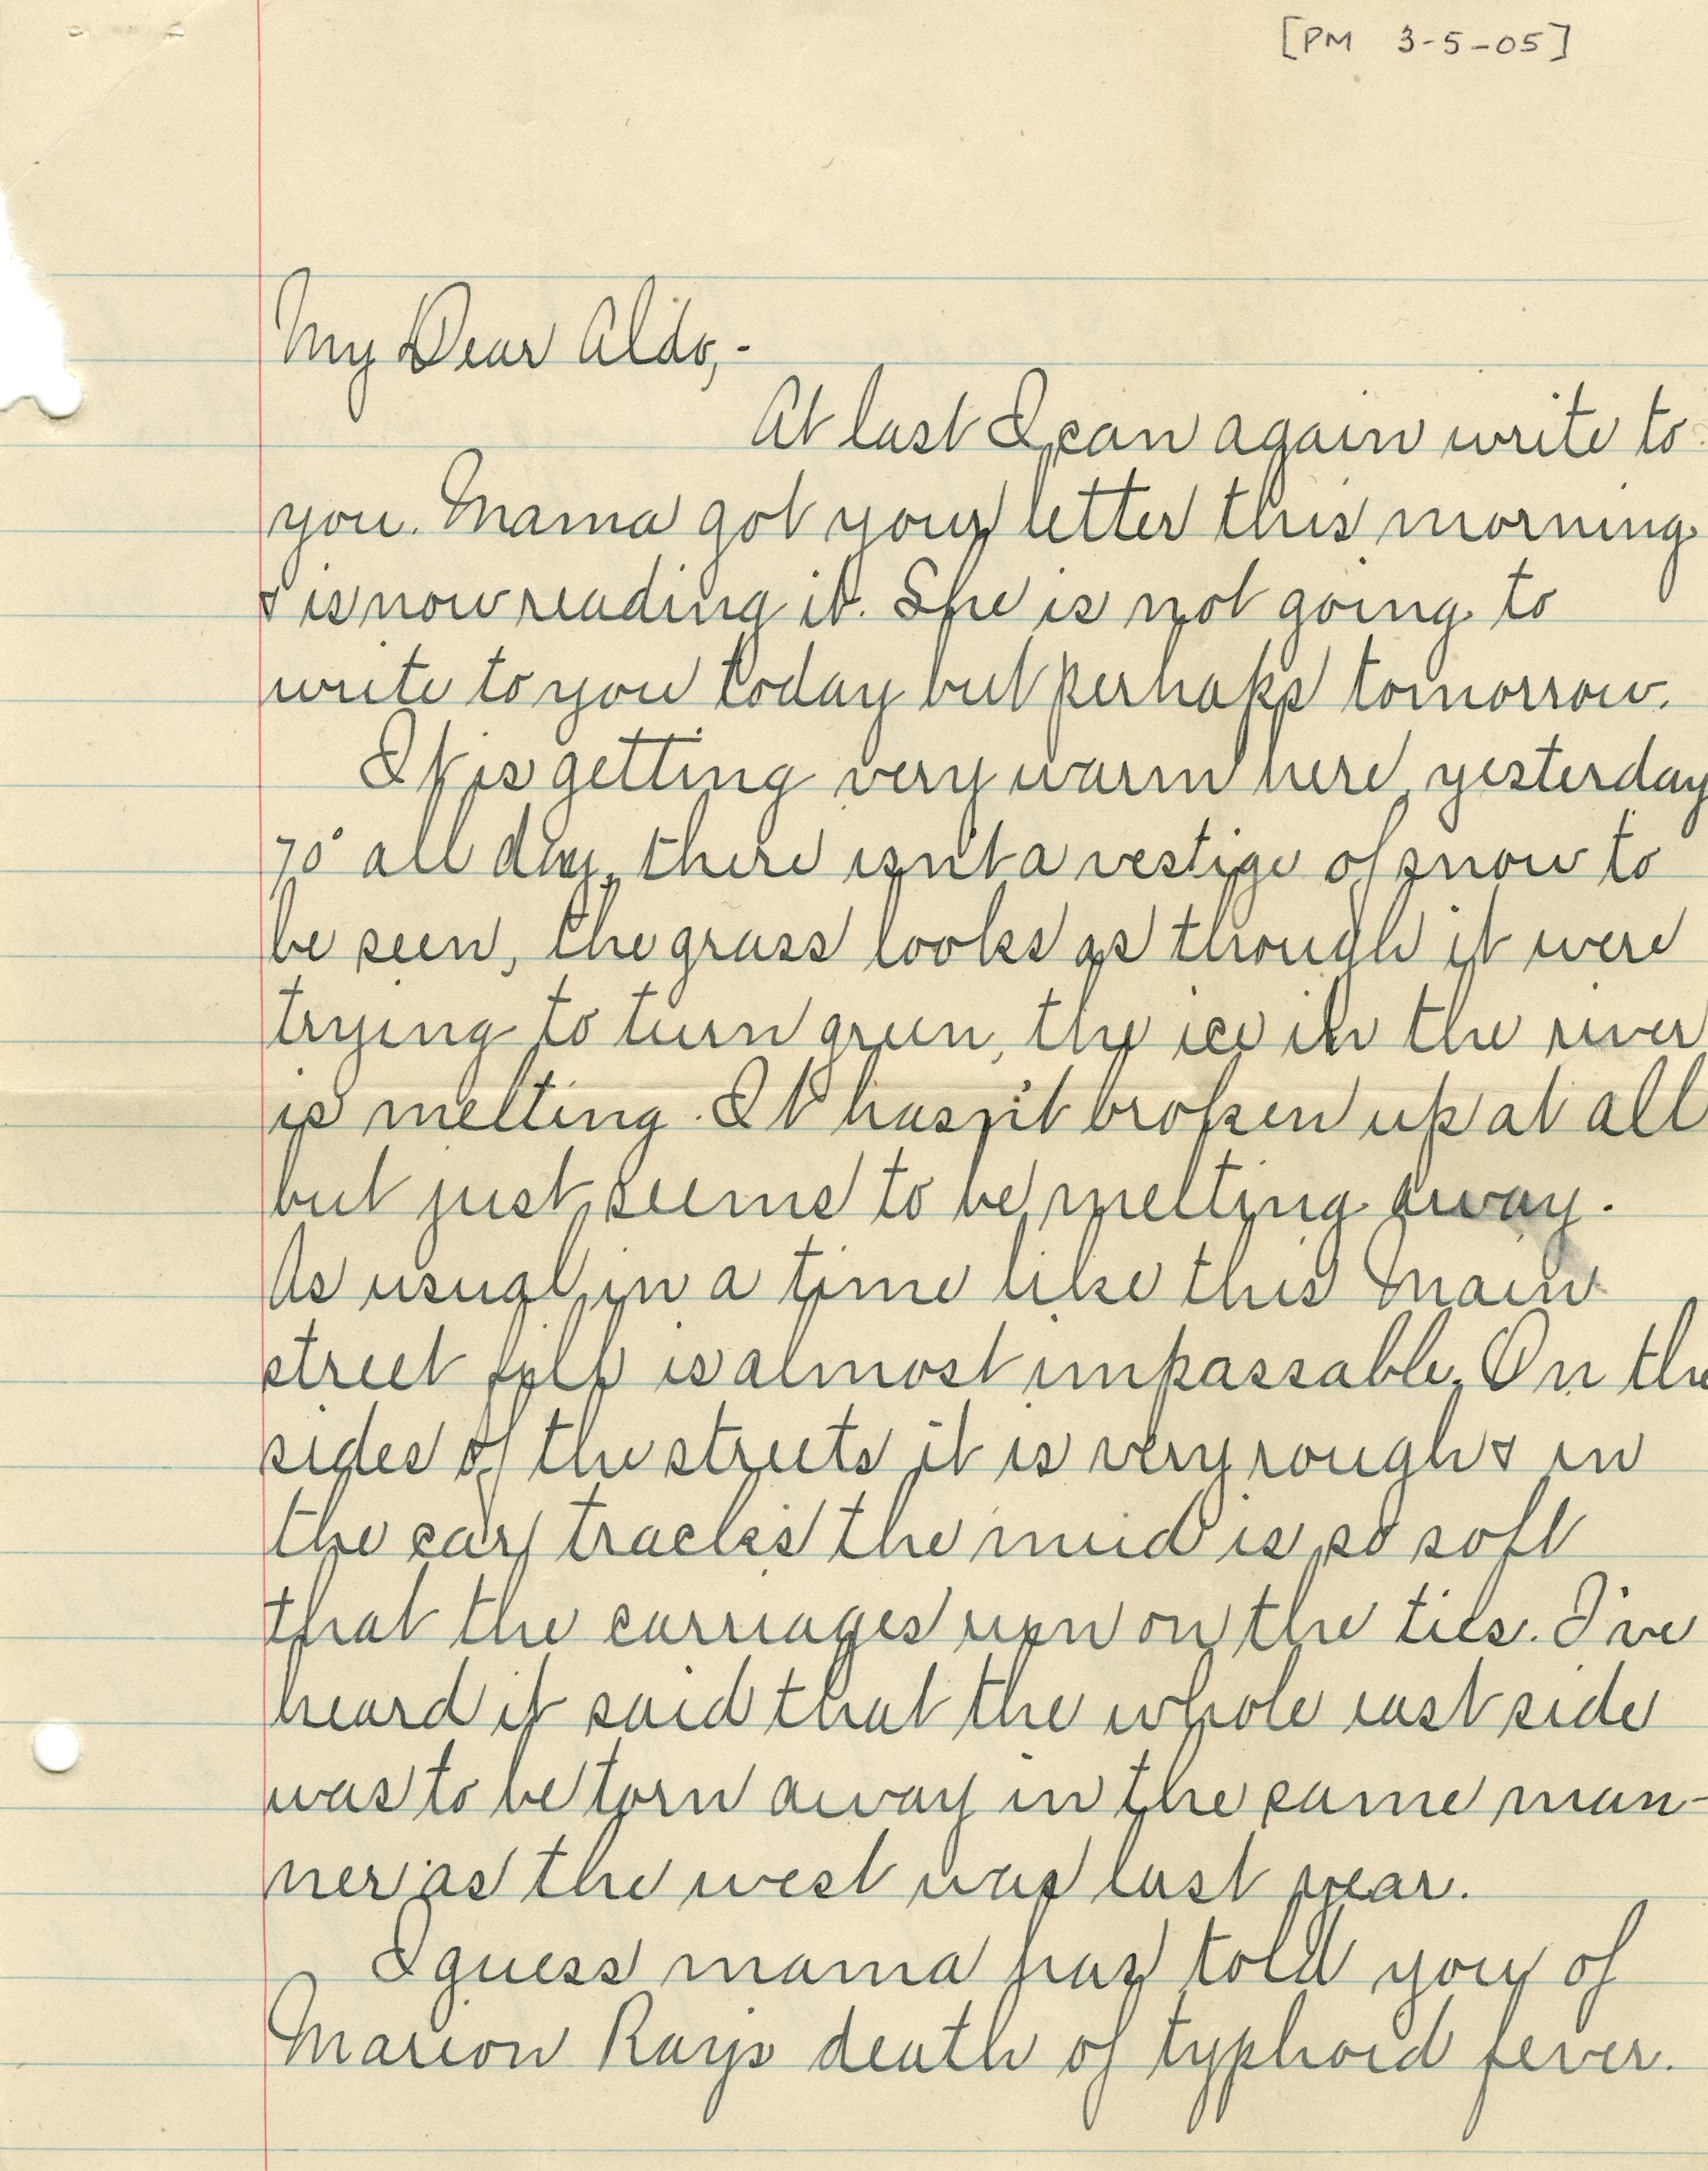 [PM 3-5-05]
My Dear Aldo,-
At last I can again write to
you. Mama got your letter this morning
& is now reading it. She is not going to
write to you today but perhaps tomorrow.
It is getting very warm here, yesterday
70° all day, there isn't a vestige of snow to
be seen, the grass looks as though it were
trying to turn green, the ice in the river
is melting. It hasn't broken up at all
but just seems to be melting away.
As usual in a time like this Main
street hill is almost impassable. On the
sides of the streets it is very rough & in
the car tracks the mud is so soft
that the carriages run on the ties. I've
heard it said that the whole east side
was to be torn away in the same man-
ner as the west was last year.
I guess mama has told you of
Marion Rays death of typhoid fever.